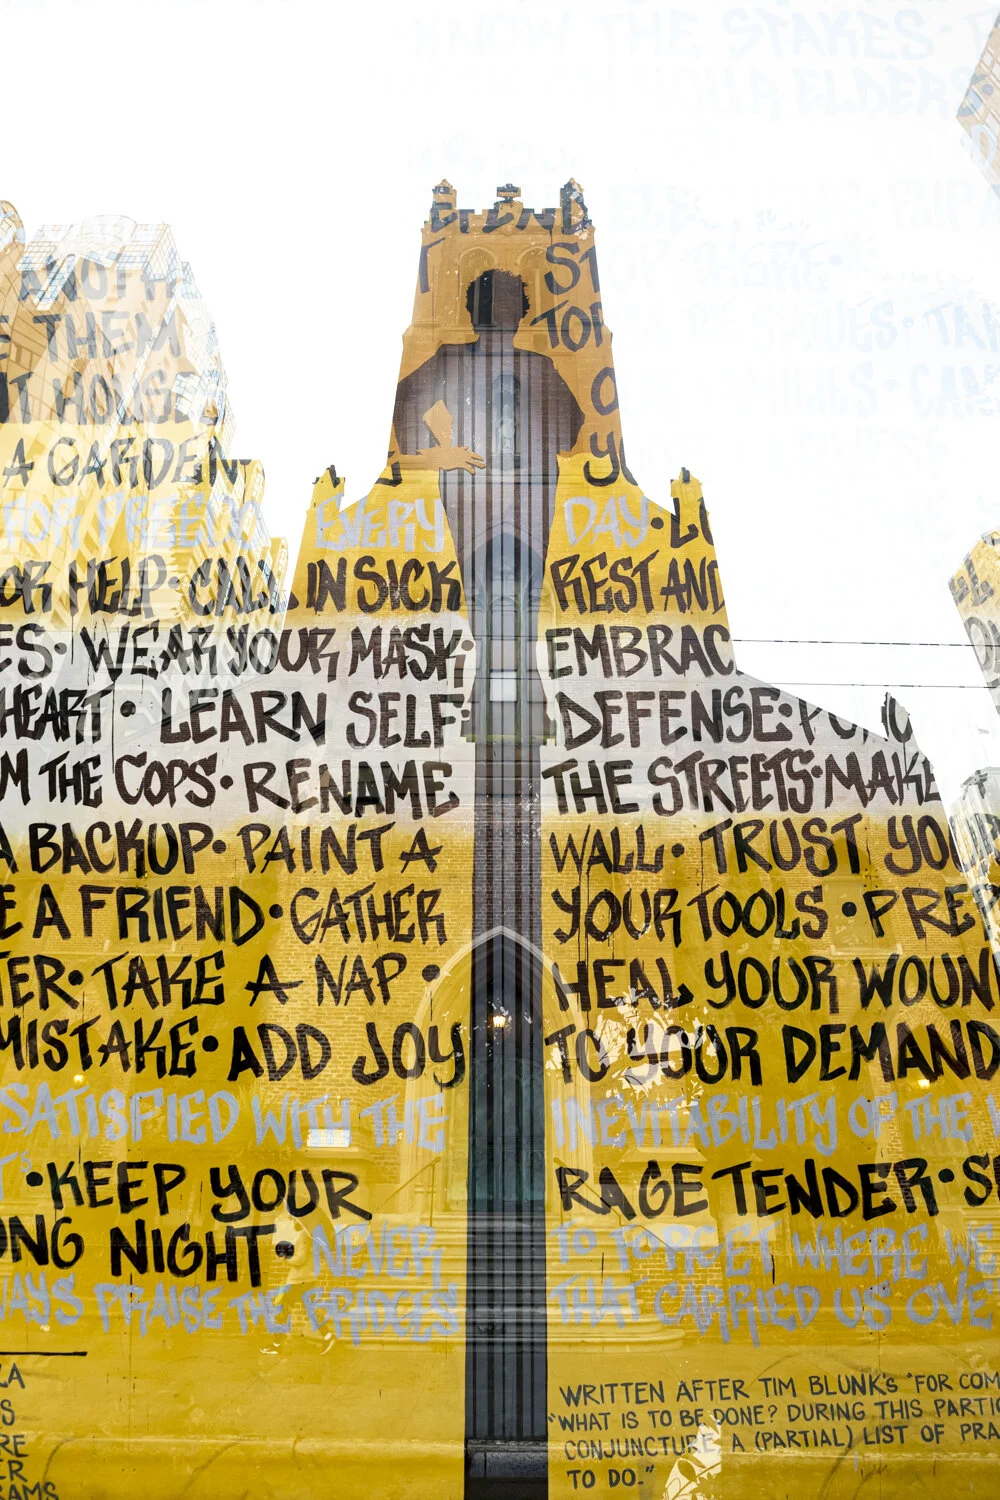 KNOW THE STAKES
YOUR ELDERS
DEFEND
ST
ANOTH
TOP
THEM
VALUES · TA
HOUSE
O
THINGS · CAN
A GARDEN
YO
FOR FREEDO EVERY DAY · L
OR HELP · CALL IN SICK REST AND
ES · WEAR YOUR MASK · EMBRAC
HEART · LEARN SELF- DEFENSE ·
M THE COPS · RENAME THE STREETS · MAKE
A BACKUP · PAINT A WALL · TRUST YOU
E A FRIEND · GATHER YOUR TOOLS · PREP
TER · TAKE A NAP · HEAL YOUR WOUN
MISTAKE · ADD JOY TO YOUR DEMAND
SATISFIED WITH THE INEVITABILITY OF THE
T'S · KEEP YOUR RAGE TENDER · S
ONG NIGHT · NEVER TO FORGET WHERE WE
WAYS PRAISE THE BRIDGES THAT CARRIED US OVE
LA
S
RE
ER
RAMS
WRITTEN AFTER TIM BLUNK'S "FOR COM
"WHAT IS TO BE DONE? DURING THIS PARTIC
CONJUNCTURE A (PARTIAL) LIST OF PRA
TO DO."